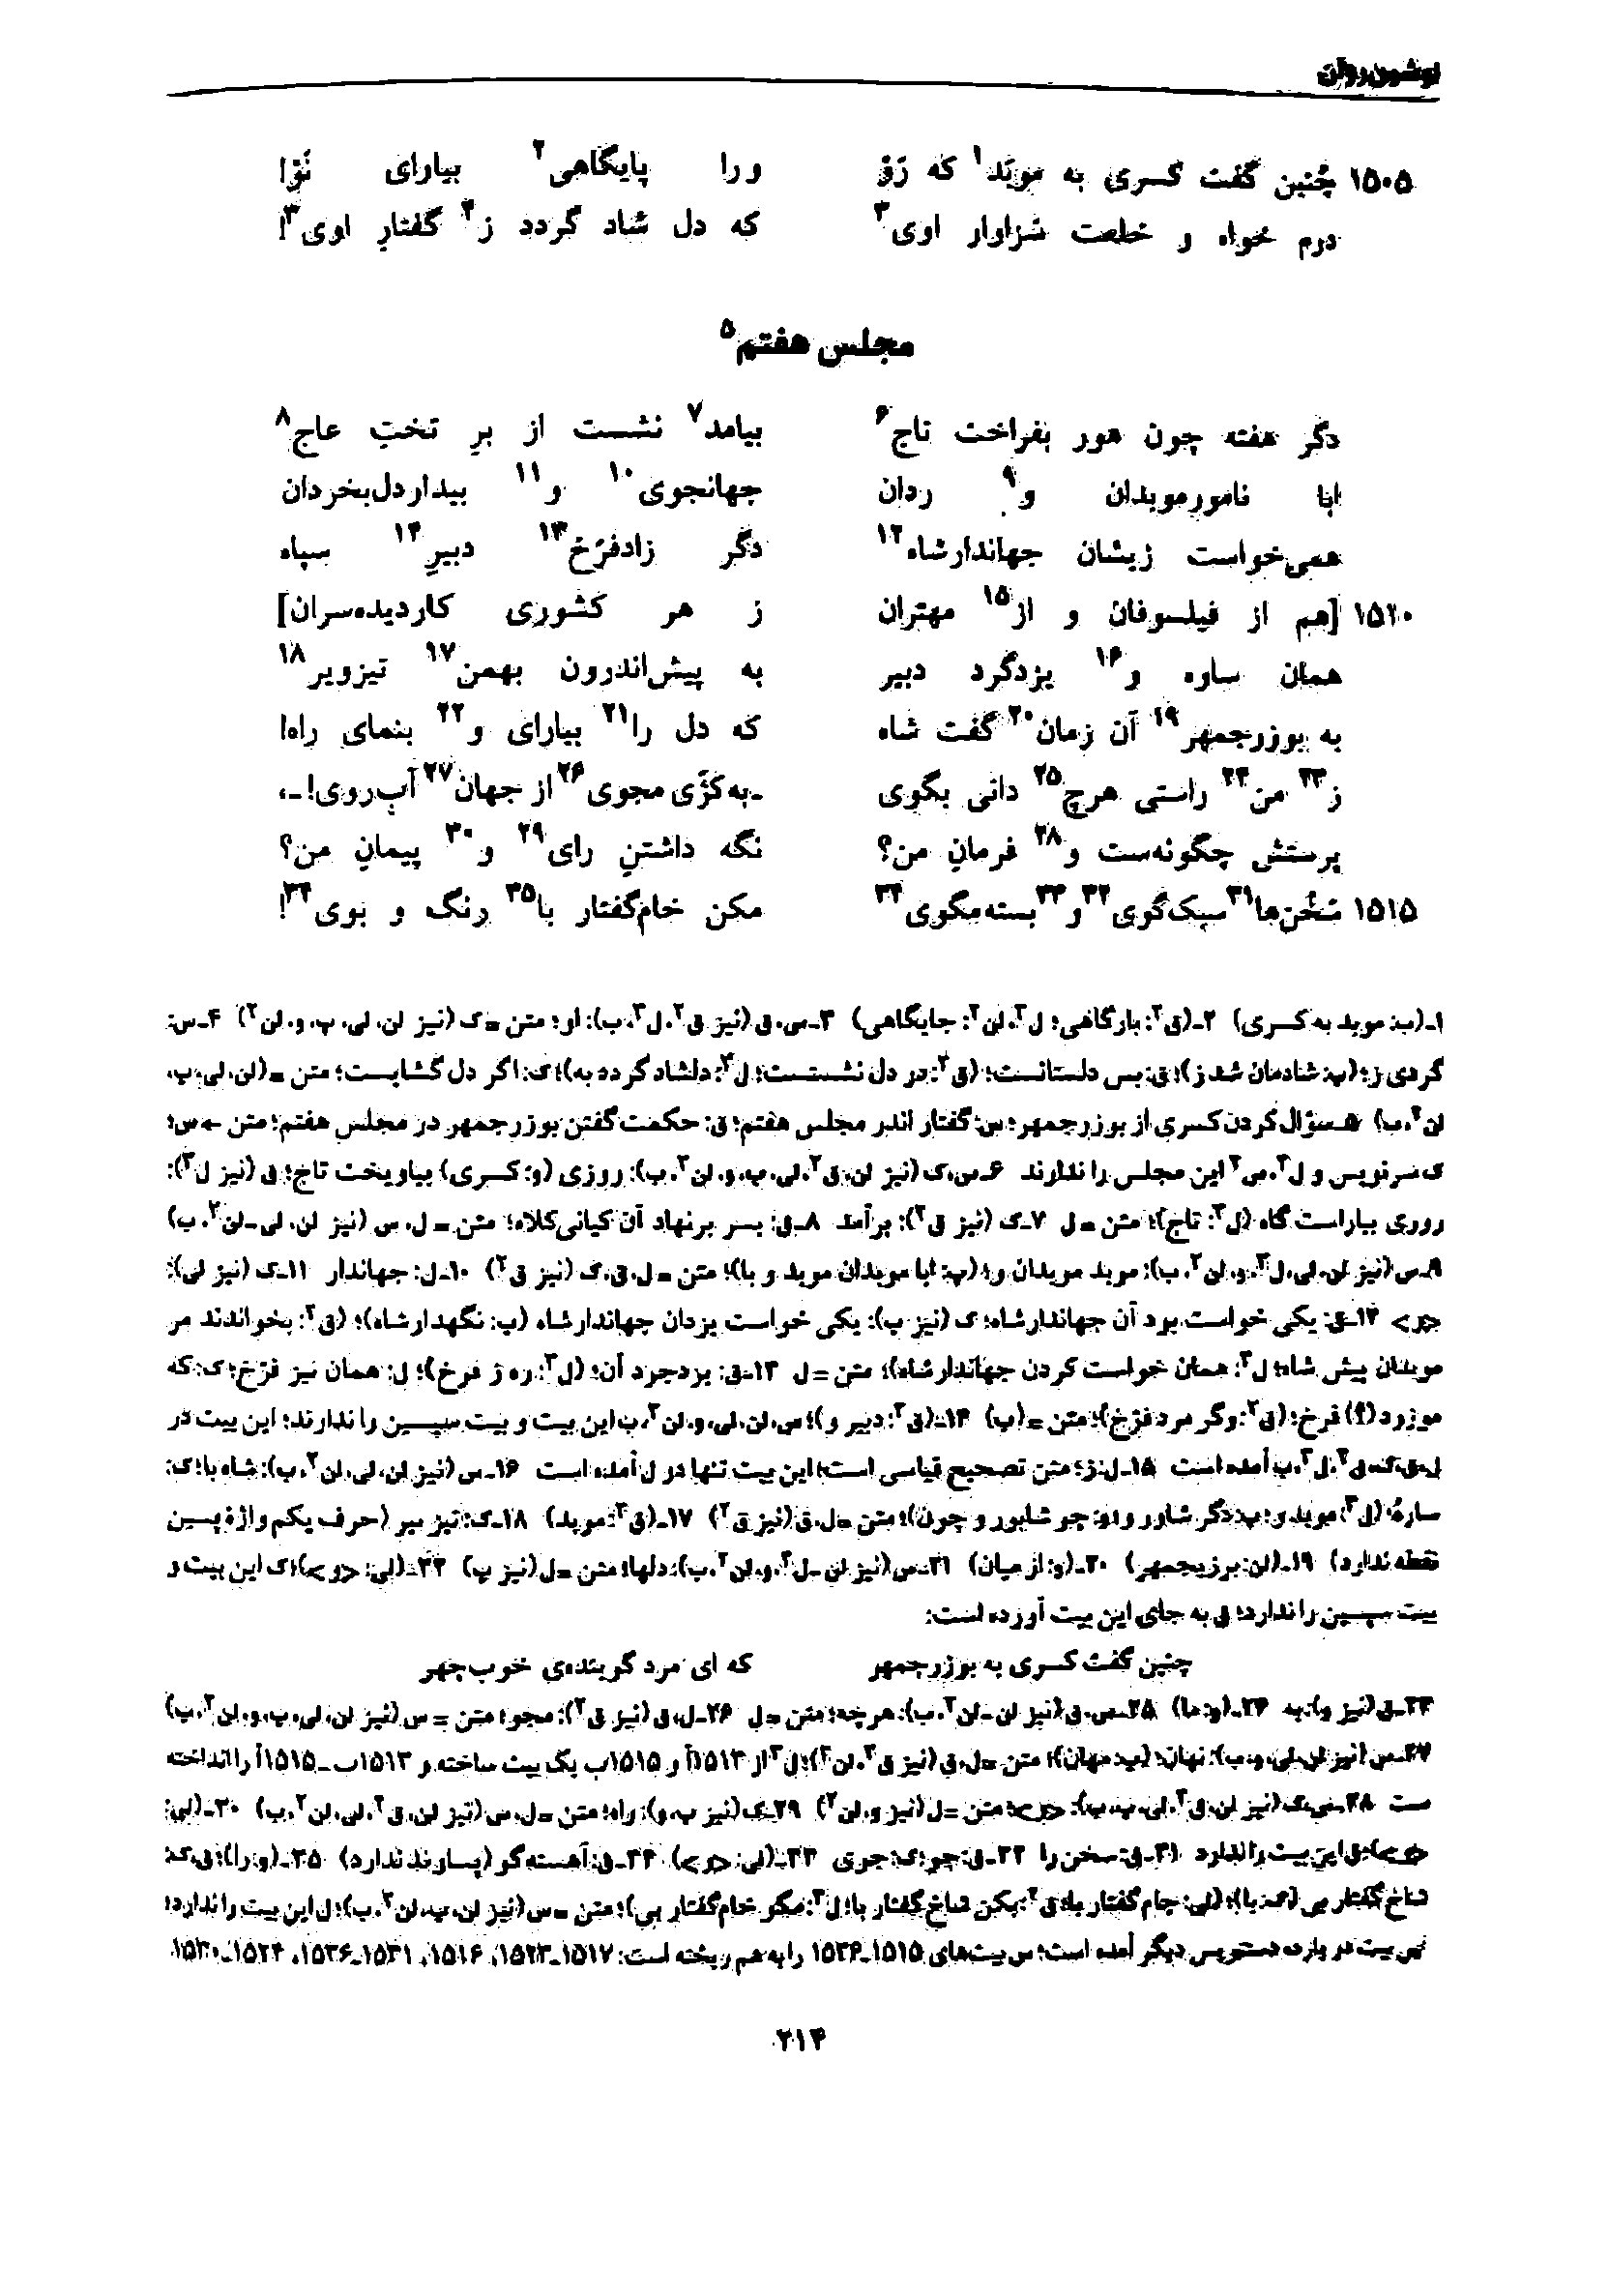 نوشین‌روان
۱۵۰۵ چُنین گفت کسری به موبَد۱ که رَو ورا پایگاهی۲ بیارای نَوْ!
درم خواه و خلعت سَزاوار اوی۳ که دل شاد گردد ز۴ گفتارِ اوی۳!
مجلس هفتم۵
دگر هفته چون هور بفراخت تاج۶ بیامد۷ نشست از برِ تختِ عاج۸
ابا نامورموبدان و۹ ردان جهانجوی۱۰ و۱۱ بیداردل‌بخردان
همی‌خواست زیشان جهاندارشاه۱۲ دگر زادفرّخ۱۳ دبیرِ۱۴ سپاه
۱۵۱۰ [هم از فیلسوفان و از۱۵ مهتران ز هر کشوری کاردیده‌سران]
همان ساوه و۱۶ یزدگرد دبیر به پیش‌اندرون بهمن۱۷ تیزویر۱۸
به بوزرجمهر۱۹ آن زمان۲۰ گفت شاه که دل را۲۱ بیارای و۲۲ بنمای راه!
ز۲۳ من۲۴ راستی هرچ۲۵ دانی بگوی ـ به کژّی مجوی۲۶ از جهان۲۷ آب‌روی! ـ،
پرستش چگونه‌ست و۲۸ فرمانِ من؟ نگه داشتنِ رای۲۹ و۳۰ پیمانِ من؟
۱۵۱۵ سَخُن‌ها۳۱ سبک‌گوی۳۲ و۳۳ بسته‌مگوی۳۴ مکن خام‌گفتار با۳۵ رنگ و بوی۳۴!
۱ـ(ب: موبد به کسری) ۲ـ(ق۲: بارگاهی؛ ل۲، لن۲: جایگاهی) ۳ـس، ق (نیز ق۲، ل۳، ب): او؛ متن = ک (نیز لن، لی، پ، و، لن۲) ۴ـس:
گردی ز؛ (پ: شادمان شد ز)؛ ق: بس دلستانست؛ (ق۲: در دل نشستست؛ ل۳: دلشاد کرده به)؛ ک: اگر دل گشایست؛ متن =(لن، لی، پ،
لن۲، ب) ۵ـسؤال کردن کسری از بوزرجمهر؛ س: گفتار اندر مجلس هفتم؛ ق: حکمت گفتن بوزرجمهر در مجلس هفتم؛ متن ← س؛
ک سرنویس و ل۲، س۲ این مجلس را ندارند ۶ـس، ک (نیز لن، ق۲، لی، پ، و، لن۲، ب): روزی (و: کسری) بیاویخت تاج؛ ق (نیز ل۳):
روری بیاراست گاه (ل۳: تاج)؛ متن = ل ۷ـک (نیز ق۲): برآمد ۸ـق: بسر برنهاد آن کیانی‌کلاه؛ متن = ل، س (نیز لن، لی ـ لن۲، ب)
۹ـس (نیز لن، لی، ل۳، و، لن۲، ب): موبد موبدان و؛ (پ: ابا موبدان موبد و با)؛ متن = ل، ق، ک (نیز ق۲) ۱۰ـل: جهاندار ۱۱ـک (نیز لی):
<و> ۱۲ـق: یکی خواست بود آن جهاندارشاه؛ ک (نیز پ): یکی خواست یزدان جهاندارشاه (پ: نگهدارشاه)؛ (ق۲: بخواندند مر
موبدان پیش شاه؛ ل۳: همان خواست کردن جهاندارشاه)؛ متن = ل ۱۳ـق: یزدجرد آن؛ (ل۳: ره ز فرخ)؛ ل: همان نیز فرّخ؛ ک: که
موزرد(؟) فرخ؛ (ق۲: وگر مرد فرّخ)؛ متن =(پ) ۱۴ـ(ق۲: دبیر و)؛ س، لن، لی، و، لن۲، ب این بیت و بیت سپسین را ندارند؛ این بیت در
ل، ق، ک، ق۲، ل۳، پ آمده است ۱۵ـل: ز؛ متن تصحیح قیاسی است؛ این بیت تنها در ل آمده است ۱۶ـس (نیز لن، لی، لن۲، ب): شاه با؛ ک:
ساره؛ (ل۳: موبد و؛ پ: دگر شاور و؛ و: جو شابور و چون)؛ متن = ل، ق (نیز ق۲) ۱۷ـ(ق۲: موبد) ۱۸ـک: تیز بیر (حرف یکم واژهٔ پسین
نقطه ندارد) ۱۹ـ(لن: برزیجمهر) ۲۰ـ(و: از میان) ۲۱ـس (نیز لن ـ ل۳، و، لن۲، ب): دلها؛ متن = ل (نیز پ) ۲۲ـ(لی: <و>)؛ ک این بیت و
بیت سپسین را ندارد؛ ق به جای این بیت آورده است:
چنین گفت کسری به بوزرجمهر که ای مرد گوینده‌ی خوب‌چهر
۲۳ـق (نیز و): به ۲۴ـ(و: ما) ۲۵ـس، ق (نیز لن ـ لن۲، ب): هرچه؛ متن = ل ۲۶ـل، ق (نیز ق۲): مجو؛ متن = س (نیز لن، لی، پ، و، لن۲، ب)
۲۷ـس (نیز لن، لی، و، ب): نهان؛ (پ: مهان)؛ متن = ل، ق (نیز ق۲، لن۲)؛ ل۳ از ۱۵۱۳آ و ۱۵۱۵ب یک بیت ساخته و ۱۵۱۳ب ـ ۱۵۱۵آ را انداخته
ست ۲۸ـس، ک (نیز لن، ق۲، لی، پ، ب): <و>؛ متن = ل (نیز و، لن۲) ۲۹ـک (نیز پ، و): راه؛ متن = ل، س (نیز لن، ق۲، لی، لن۲، ب) ۳۰ـ(لی:
<و>)؛ ق این بیت را ندارد ۳۱ـق: سخن را ۳۲ـق: جو؛ ک: جوی ۳۳ـ(لی: <و>) ۳۴ـق: آهسته گو (پساوند ندارد) ۳۵ـ(و: را)؛ ق، ک:
شاخ گفتار بی (ک: با)؛ (لی: جام گفتار با؛ ق۲: بکن شاخ گفتار با؛ ل۳: مگو خام‌گفتار بی)؛ متن = س (نیز لن، پ، لن۲، ب)؛ ل این بیت را ندارد؛
بیت در یازده دستنویس دیگر آمده است؛ س بیت‌های ۱۵۱۵ـ۱۵۳۶ را به هم ریخته است: ۱۵۱۷ـ۱۵۲۳، ۱۵۱۶، ۱۵۳۱ـ۱۵۳۶، ۱۵۲۴ـ۱۵۳۰
۲۱۴